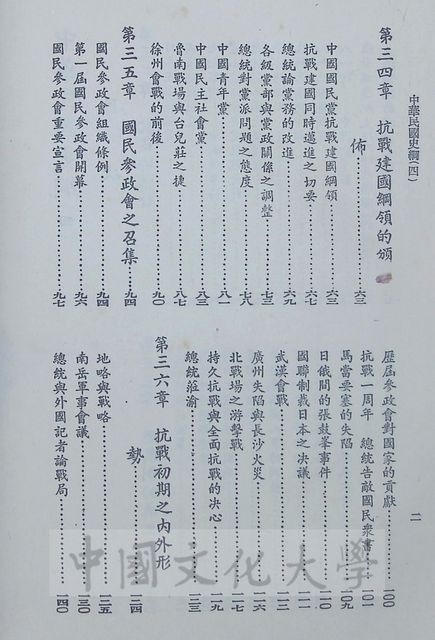 中華民國史綱(四)
二
第三四章 抗戰建國綱領的頒
佈……六三
中國國民黨抗戰建國綱領……六三
抗戰建國同時邁進之切要……六七
總統論黨務的改進……六九
各級黨部與黨政關係之調整……七三
總統對黨派問題之態度……七八
中國青年黨……八一
中國民主社會黨……八三
魯南戰場與台兒莊之捷……八七
徐州會戰的前後……九〇
第三五章 國民參政會之召集……九四
國民參政會組織條例……九四
第一屆國民參政會開幕……九六
國民參政會重要宣言……九七
歷屆參政會對國家的貢獻……一〇〇
抗戰一周年 總統告敵國民衆書……一〇一
馬當要塞的失陷……一〇九
日俄間的張鼓峯事件……一一〇
國聯制裁日本之決議……一一一
武漢會戰……一一二
廣州失陷與長沙火災……一一六
北戰場之游擊戰……一一七
持久抗戰與全面抗戰的決心……一一九
總統莊諭……一二三
第三六章 抗戰初期之內外形
勢……一二四
地略與戰略……一二五
南岳軍事會議……一三〇
總統與外國記者論戰局……一四〇
中國文化大學